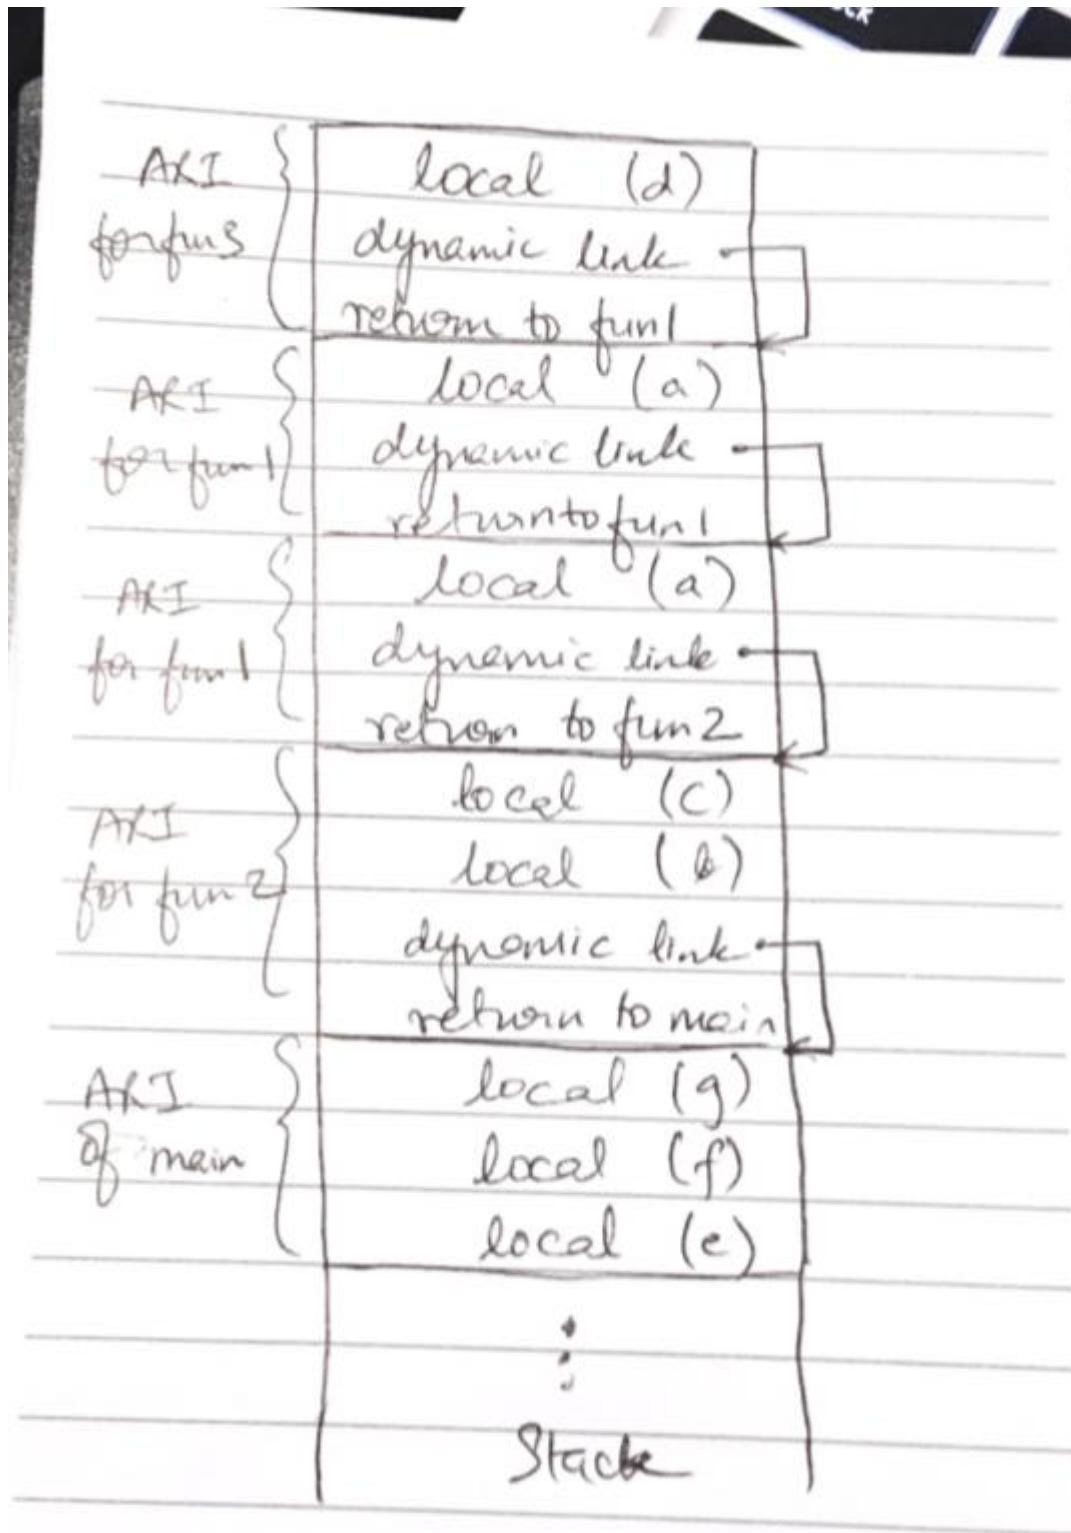 CK
ARI
for fun3
local (d)
dynamic link
return to fun1
ARI
for fun1
local (a)
dynamic link
return to fun1
ARI
for fun1
local (a)
dynamic link
return to fun2
ARI
for fun2
local (c)
local (b)
dynamic link
return to main
ARI
of main
local (g)
local (f)
local (e)
Stack